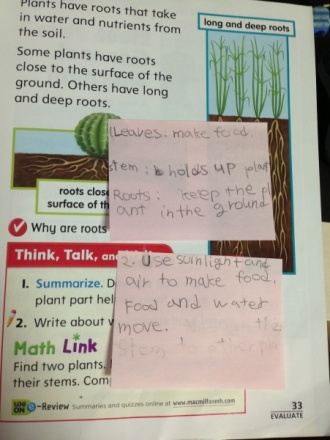 Plants have roots that take
in water and nutrients from
the soil.
Some plants have roots
close to the surface of the
ground. Others have long
and deep roots.
long and deep roots
Leaves: make food.
stem: holds up plant
Roots: keep the pl
ant in the ground
roots close
surface of th
Why are roots
Think, Talk, and
1. Summarize. D
plant part hel
2. Write about
Math Link
Find two plants.
their stems. Com
2. Use sunlight and
air to make food.
Food and water
move.
LOG ON e-Review Summaries and quizzes online at www.macmillanmh.com
33
EVALUATE